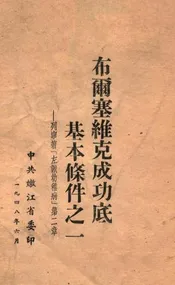 布爾塞維克成功底
基本條件之一
——列寧著「左派幼稚病」第二章
中共嫩江省委印
一九四八年六月